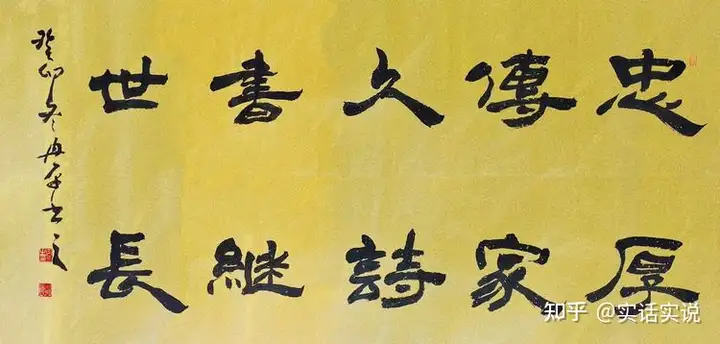 忠厚
傳家
久詩
書繼
世長
癸卯冬
知乎 @实话实说